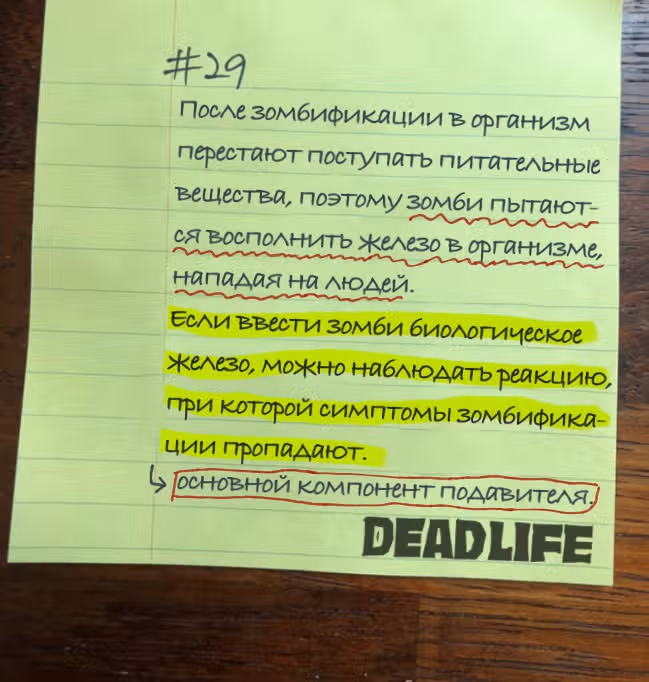 #29
После зомбификации в организм
перестают поступать питательные
вещества, поэтому зомби пытают-
ся восполнить железо в организме,
нападая на людей.
Если ввести зомби биологическое
железо, можно наблюдать реакцию,
при которой симптомы зомбифика-
ции пропадают.
↳ основной компонент подавителя.
DEAD LIFE